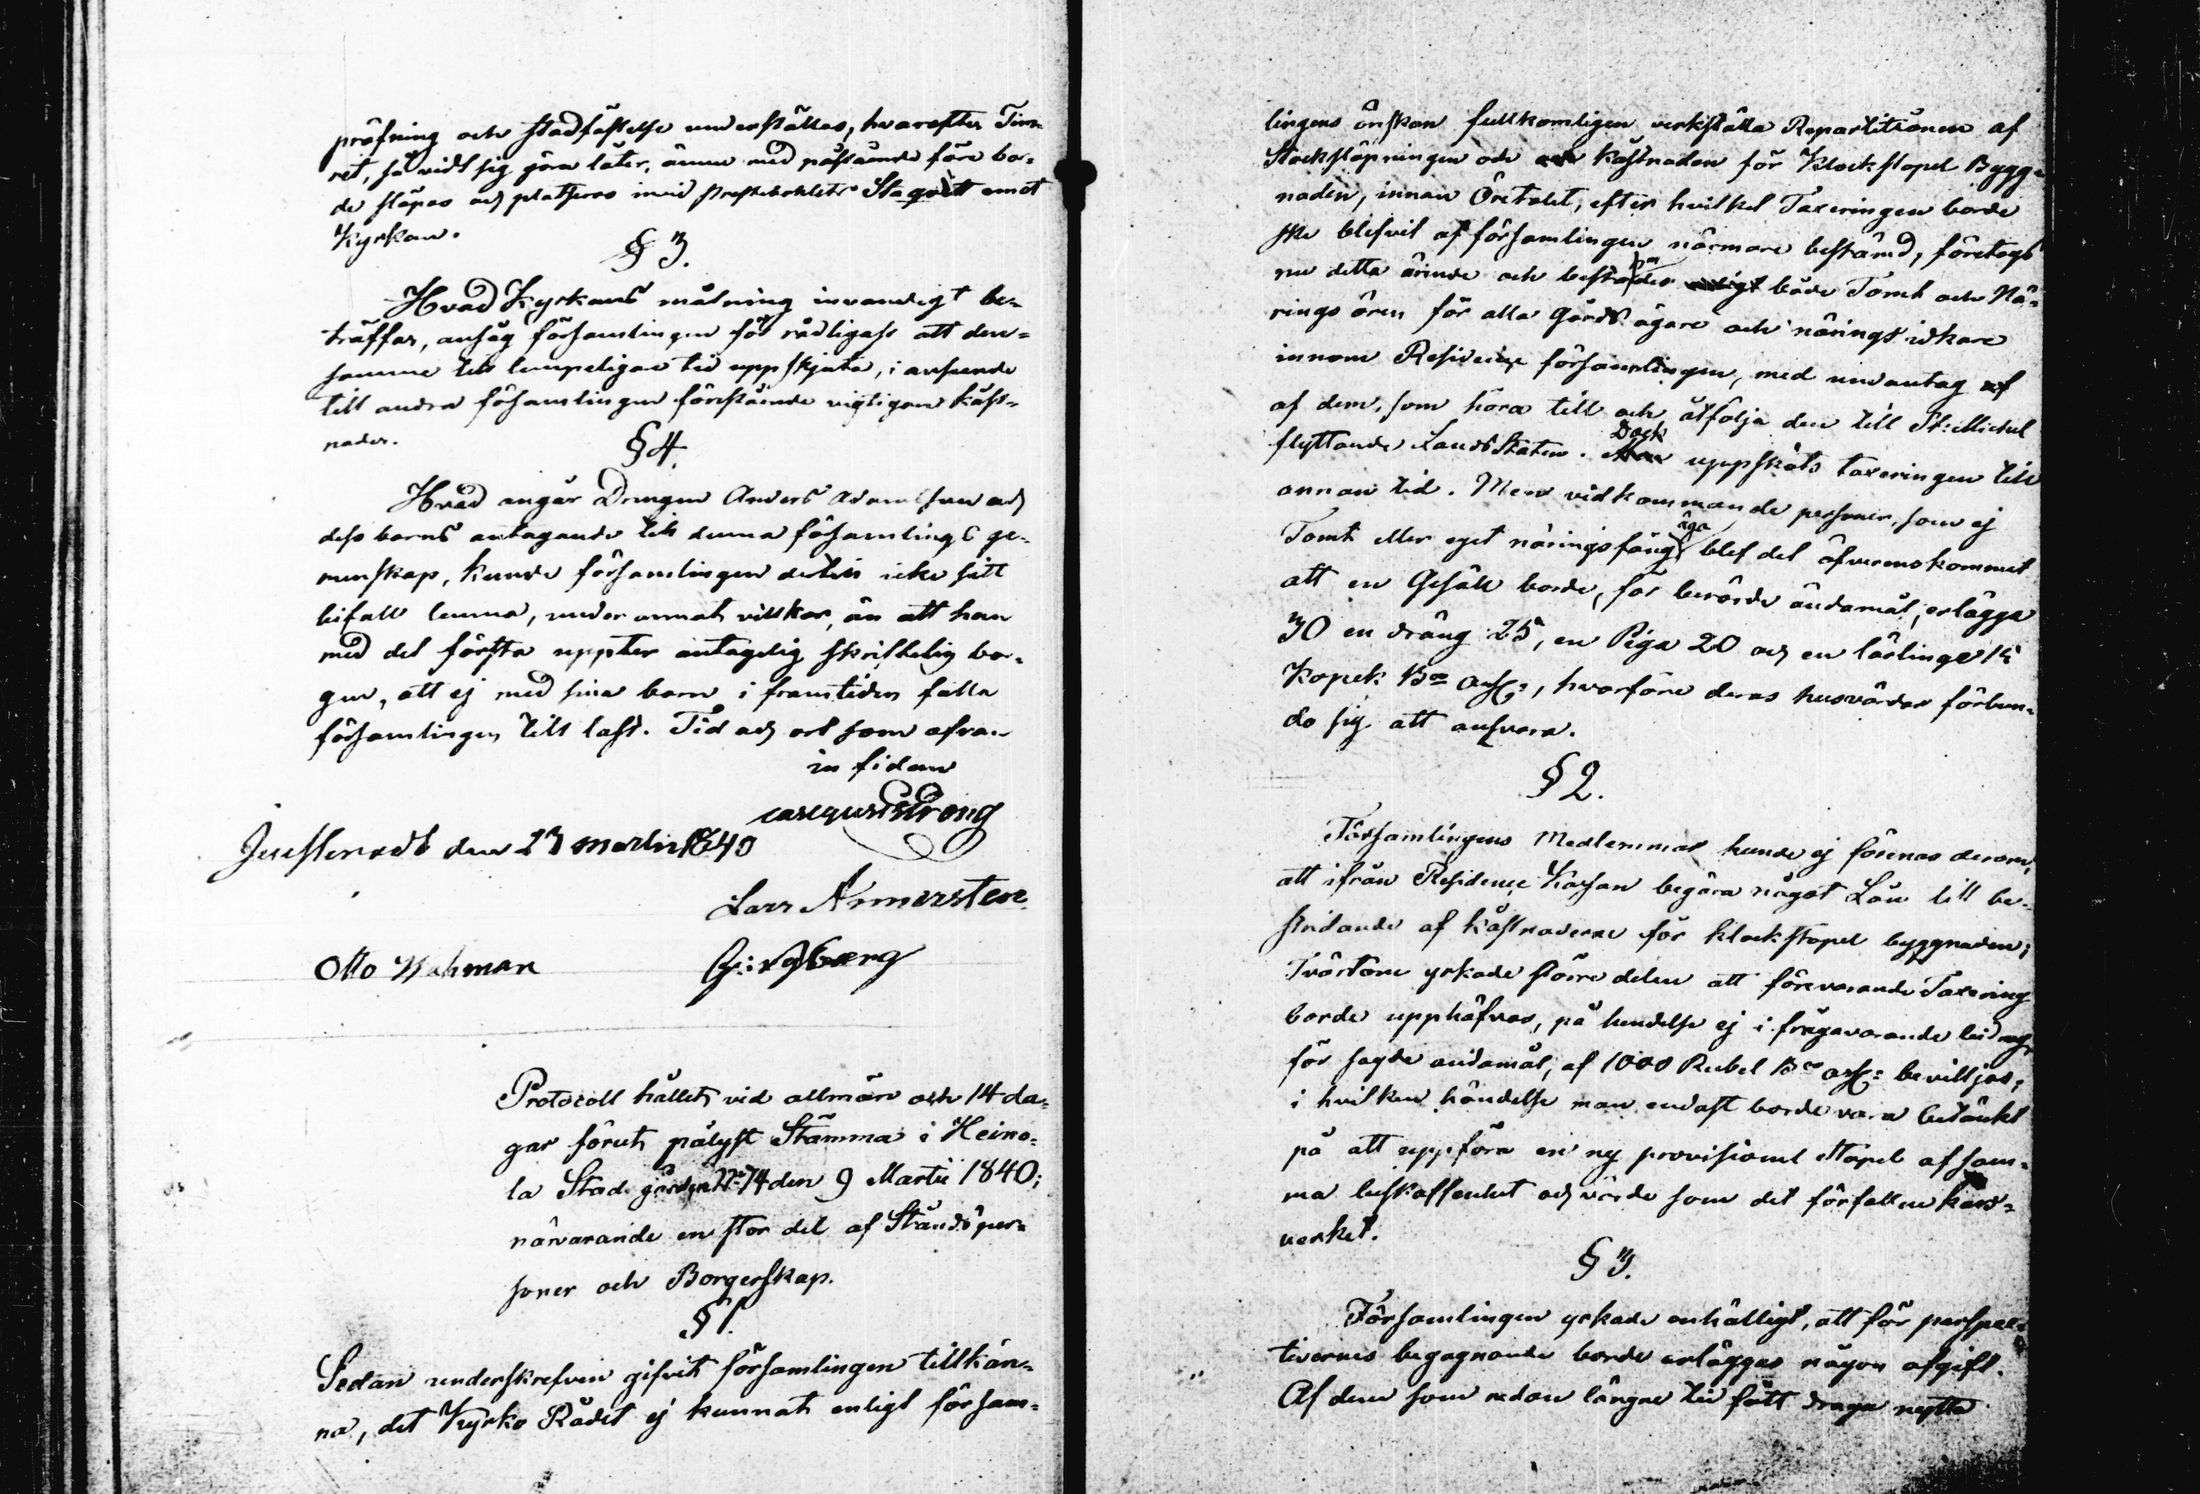 pröfning och stadfästelse underställas, hvarefter Tim-
ret, så vidt sig göra låter, ännu med påstående före bo-
de släpas och platseras invid Prestebohlets Staquet emot
Kyrkan.
§ 3.
Hvad Kyrkans målning invändigt be-
träffar, ansåg församlingen för rådligast att den-
samma till lämpeligare tid uppskjuta, i anseende
till andra församlingen förestående vigtigare kåst-
nader.
§ 4.
Hvad angår Drängen Anders Adamsson och
dess barns antagande till denna församlings ge-
menskap, kunde församlingen dertill icke sitt
bifall lemna, under annat villkor, än att han
med det första uppter antagelig skriftelig bor-
gen, att ej med sina barn i framtiden falla
församlingen till last. Tid och ort som ofvan
in fidem
Justeradt den 23 Martii 1840
Lars Ammersten
Otto Wahman
Protocoll hållet vid allmän och 14 da-
gar förut pålyst Stämma i Heino-
la Stad gården N:o 74 den 9 Martii 1840;
närvarande en stor del af Ståndsper-
soner och Borgerskap.
§ 1.
Sedan underskrefven gifvit församlingen tillkän-
na, det Kyrko Rådet ej kunnat enligt försam-
lingens önskan fullkomligen verkställa Repartitionen af
Stockslöpningen och kåstnaden för Klockstapel Bygg-
naden, innan Öretalet, efter hvilket Taxeringen borde
ske blefvit af församlingen närmare bestämd, företogs
nu detta ärende och bestämdes både Tomt och Nä-
rings ören för alla Gårds ägare och närings idkare
innom Residence församlingen, med undantag af
af dem, som höra till och åtfölja den till St: Michel
flyttande Lands Staten. Dock uppsköts taxeringen till
annan tid. Men vidkommande personer, som ej
Tomt eller eget näringsfång äga blef det öfverenskommet
att en Gesäll borde, för berörde ändamål, erlägga
30 en dräng 25, en Piga 20 och en lärlinge 15
Kopek B:co Ass:, hvarföre deras husvärdar förbun-
do sig att ansvara.
§ 2.
Församlingens Medlemmar kunde ej förenas derom,
att ifrån Residence Kassan begära något Lån till be-
stridande af kåstnaderne för klockstapel byggnaden;
Tvärtom yrkade större delen att förevarande Taxering
borde upphäfvas, på hendelse ej i frågavarande bidrag,
för sagde ändamål, af 1000 Rubel B:co Ass: bevilljas;
i hvilken händelse man endast borde vara betänkt
på att uppföra en ny provisionel Stapel af sam-
ma beskaffenhet och värde som det förfallna kors-
verket.
§ 3.
Församlingen yrkade enhälligt, att för perspec-
tivernes begagnande borde erläggas någon afgift.
Af dem som redan längre tid fått draga nytta